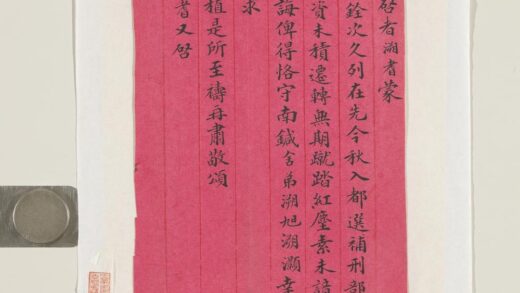 啓者溯耆蒙
銓次久列在先今秋入都選補刑部
資未積遷轉無期蹴踏紅塵素未諳
誨俾得恪守南鍼舍弟溯旭溯灝幸
求
植是所至禱再肅敬頌
耆又啓